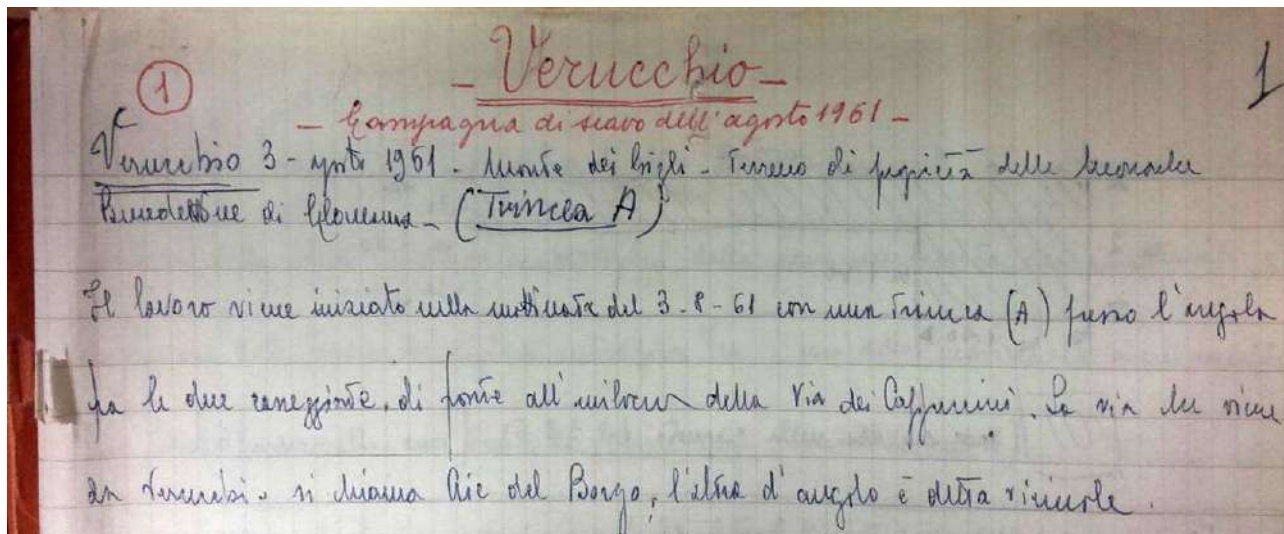 1
- Verucchio -
1
- Campagna di scavo dell'agosto 1961 -
Verucchio 3 - agosto 1961 - Monte dei Gigli - Terreno di proprietà delle Monache
Benedettine di - (Trincea A)
Il lavoro viene iniziato nella mattinata del 3-8-61 con una Trincea (A) presso l'angolo
fra le due, di fronte all'imbocco della Via dei Cappuccini. La via che viene
da Verucchio si chiama del Borgo, l'altra d'angolo è detta vicinale.